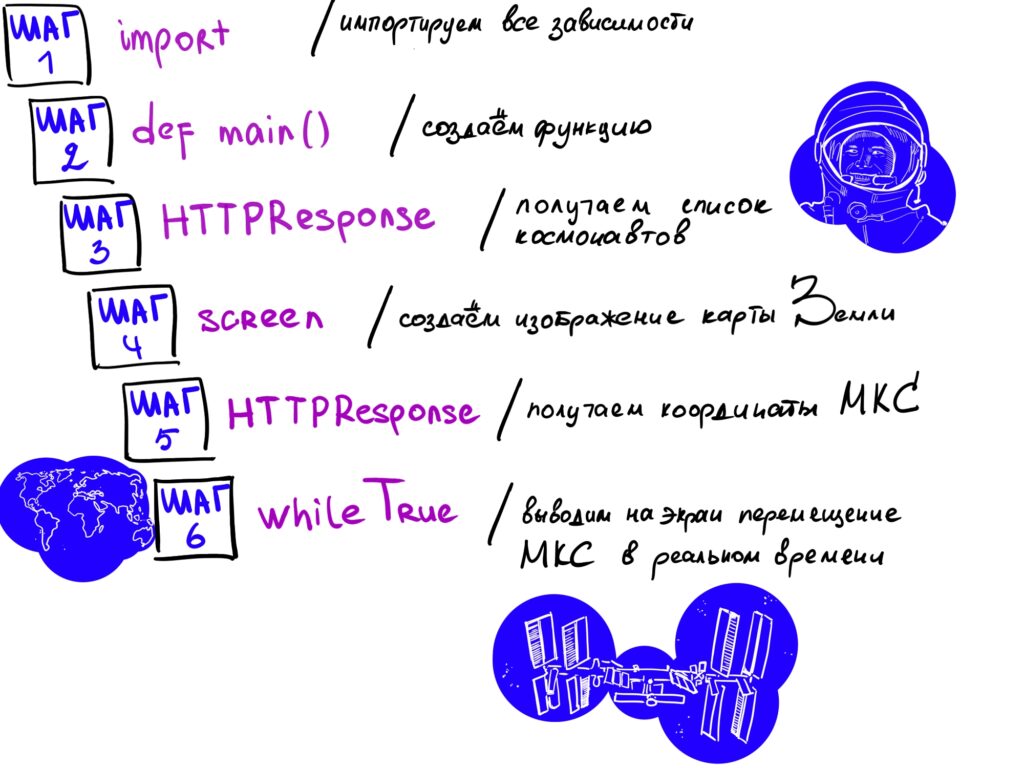 ШАГ
1
import / импортируем все зависимости
ШАГ
2
def main() / создаём функцию
ШАГ
3
HTTPResponse / получаем список
космонавтов
ШАГ
4
screen / создаём изображение карты Земли
ШАГ
5
HTTPResponse / получаем координаты МКС
ШАГ
6
while True / выводим на экран перемещение
МКС в реальном времени